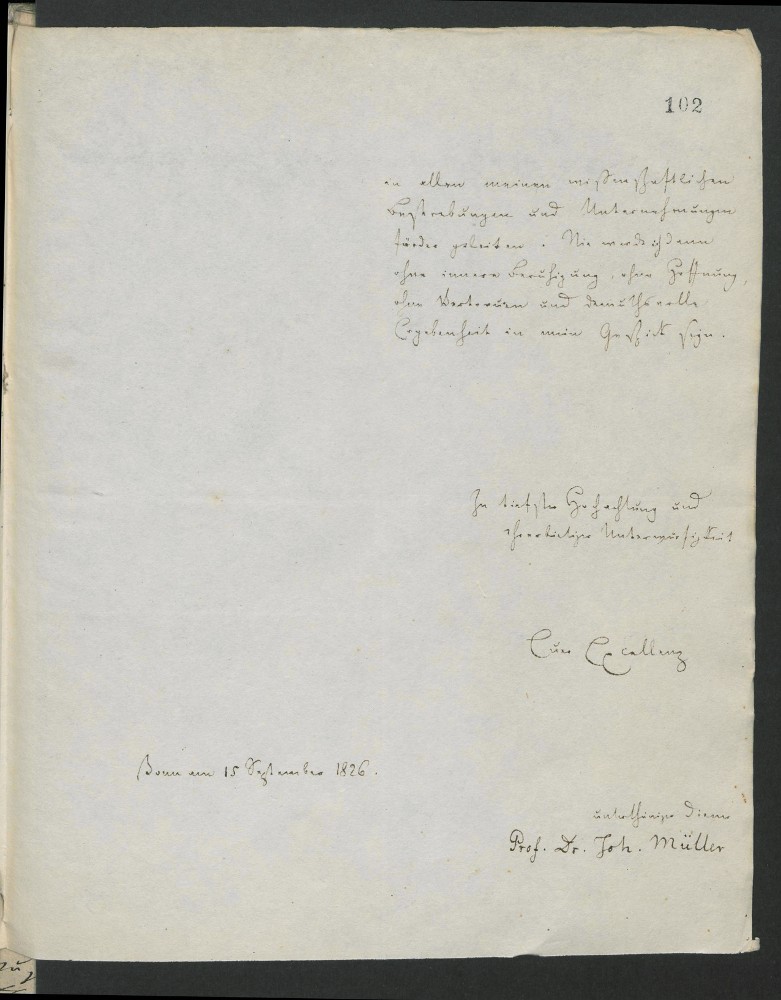 102
in allen meinen wissenschaftlichen
Bestrebungen und Unternehmungen
fürder geleiten. Nie werde ich dann
ohne innere Beruhigung, ohne Hoffnung,
ohne Vertrauen und demuthsvolle
Ergebenheit in mein Geschick seyn.
In tiefster Hochachtung und
ehrerbietiger Unterwürfigkeit
Euer Excellenz
Bonn am 15 September 1826.
unterthäniger Diener
Prof. Dr. Joh. Müller